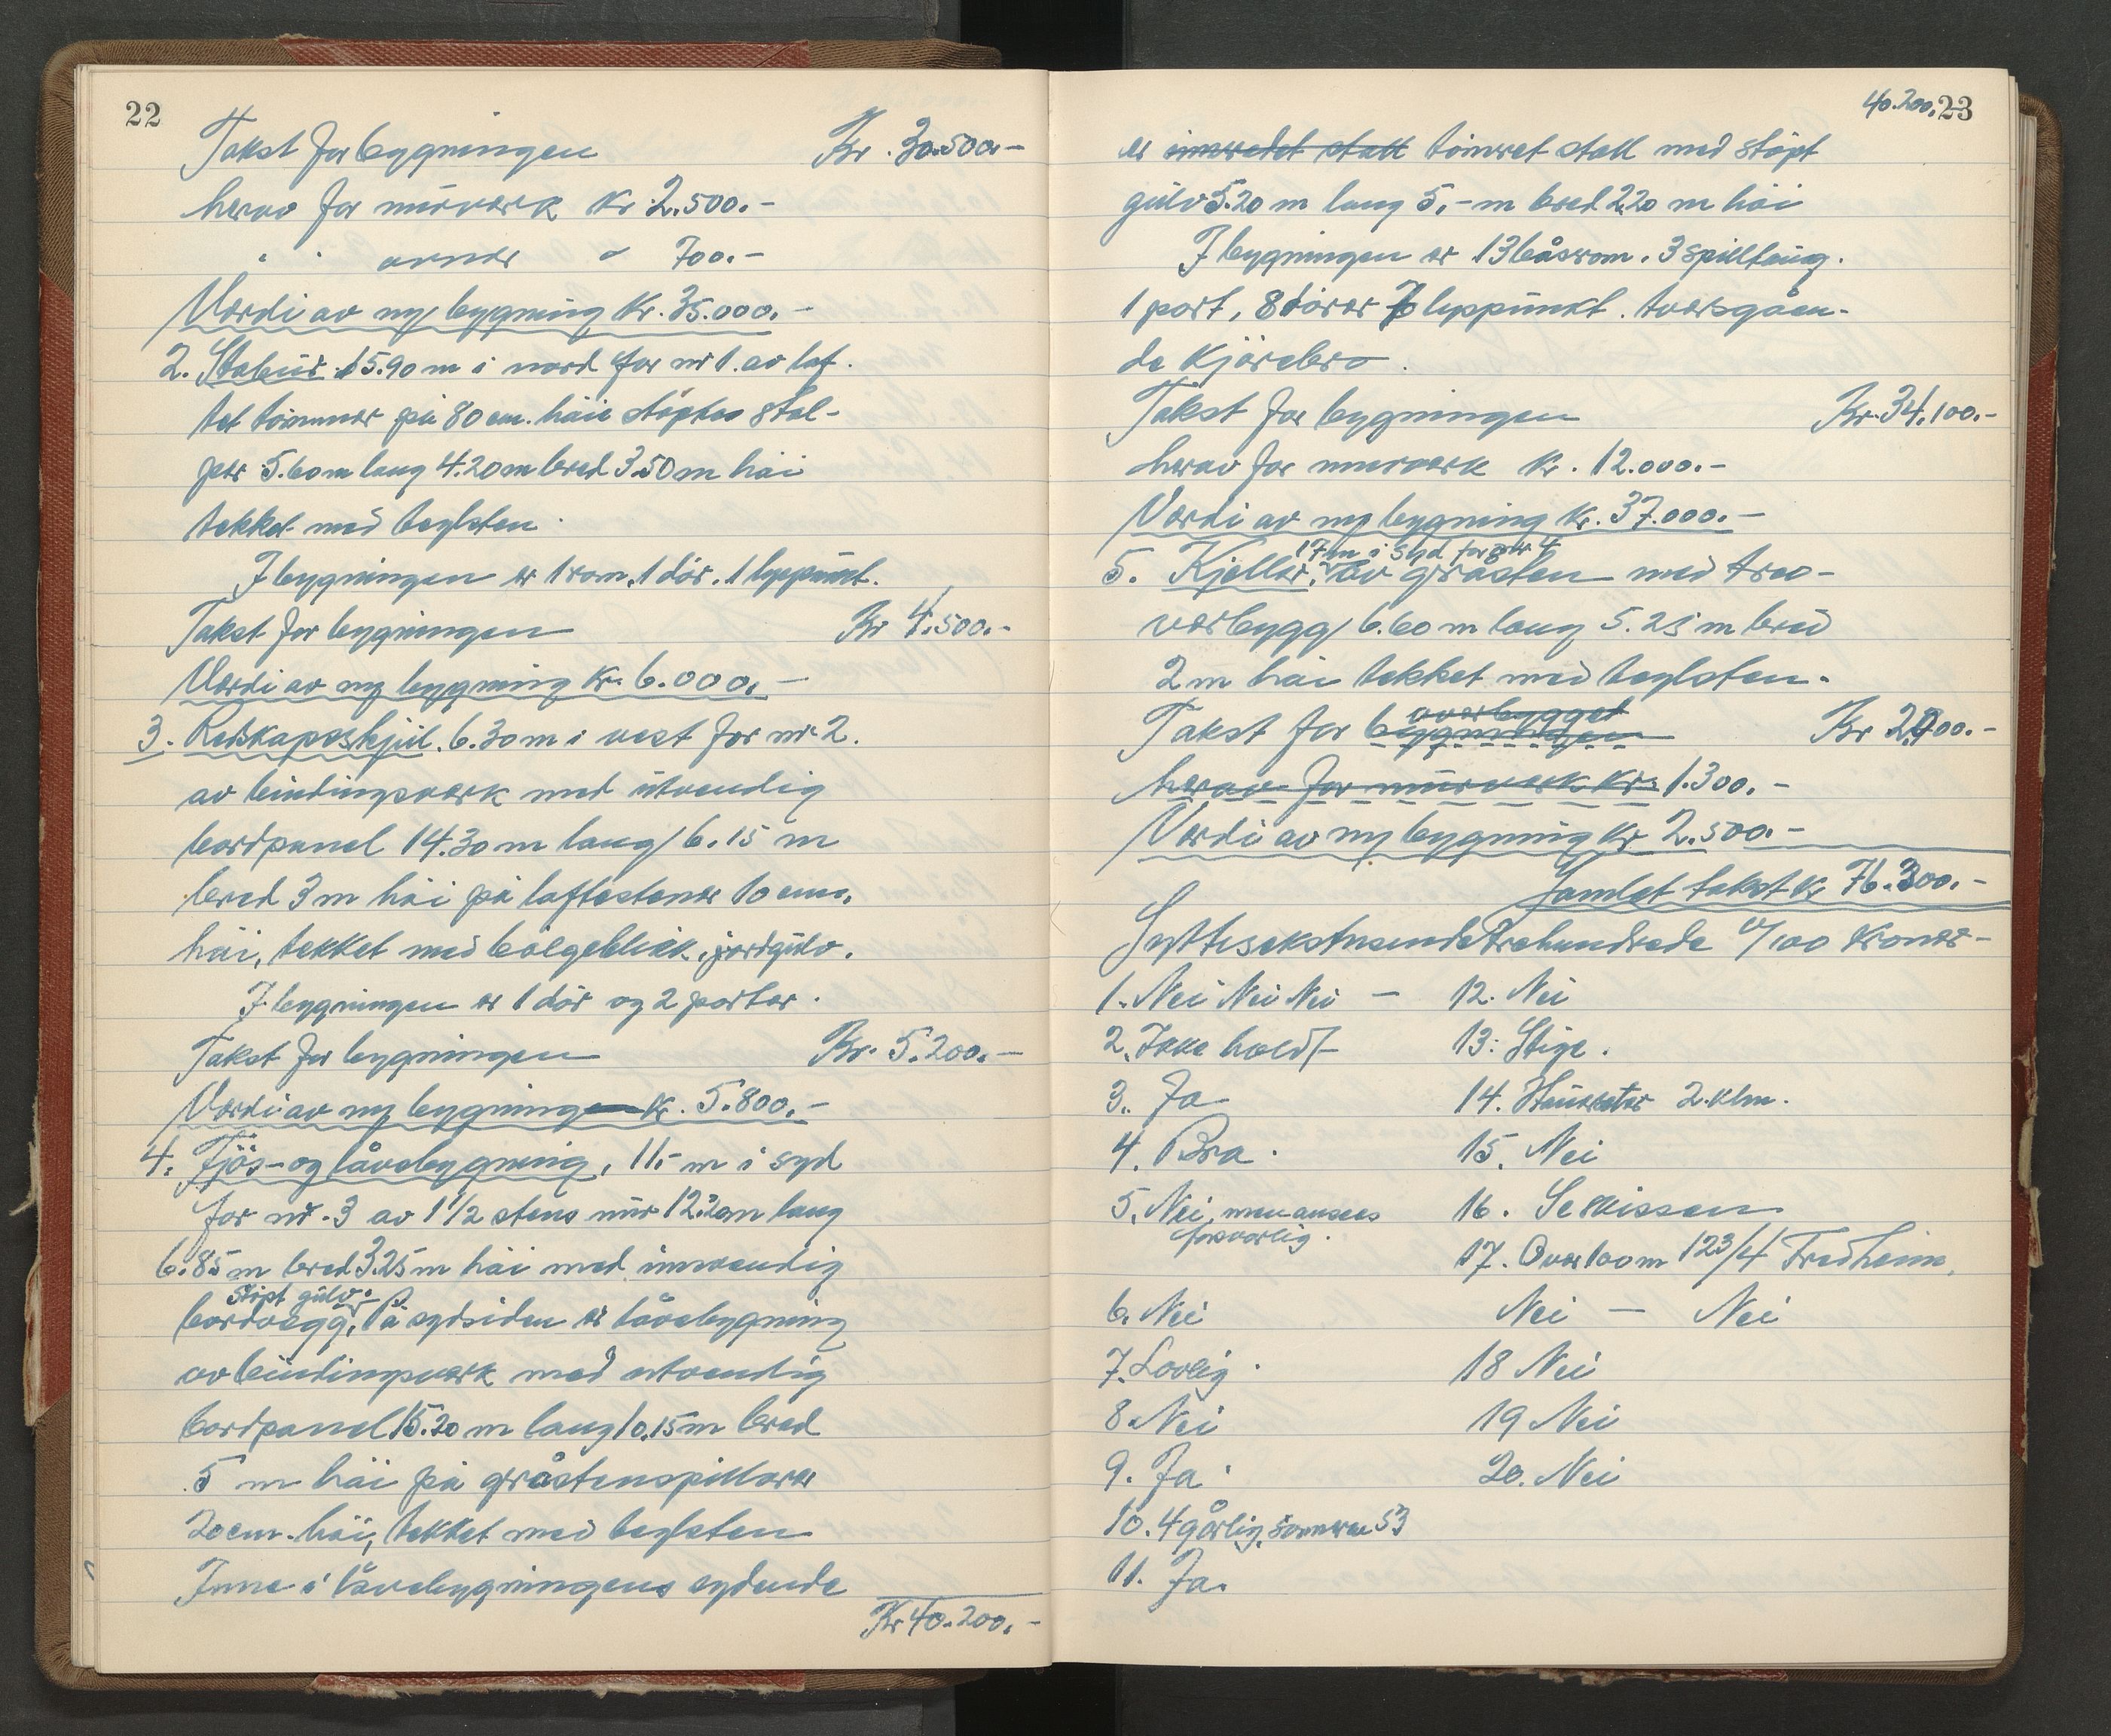 22
Takst for bygningen Kr. 30.500.-
herav for murverk Kr 2.500.-
" " ovner " 700.-
Verdi av ny bygning Kr. 35.000.-
2. Stabur 15.90 m i nord for nr 1. av laf-
tet tömmer på 80 cm. höie stöpte stol-
per 5.60 m lang 4.20 m bred 3.50 m höi
tekket med teglsten.
I bygningen er 1 rom, 1 dör. 1 lyspunkt.
Takst for bygningen Kr 4.500.-
Verdi av ny bygning Kr. 6.000.-
3. Redskapsskjul. 6.30 m i vest for nr 2.
av bindingsverk med utvendig
bordpanel 14.30 m lang 6.15 m
bred 3 m höi på laftestener 10 cm.
höi, tekket med bölgeblikk, jordgulv.
I bygningen er 1 dör og 2 porter.
Takst for bygningen Kr. 5.200.-
Verdi av ny bygningen Kr. 5.800.-
4. Fjös- og låvebygning, 11.- m i syd
for nr. 3 av 1 1/2 stens mur 12.20 m lang
6.85 m bred 3.25 m höi med innvendig
stöpt gulv.
bordvegg, På sydsiden er låvebygning
av bindingsverk med utvendig
bordpanel 15.20 m lang 10.15 m bred
5 m höi på gråstenspillarer
20 cm. höi, tekket med teglsten
Inne i låvebygningens sydende
Kr 40.200.-
40.200. 23
er innredet stall tömret stall med stöpt
gulv 5.20 m lang 5.- m bred 2.20 m höi
I bygningen er 13 båsrom. 3 spilltaug.
1 port, 8 dörer lyspunkt. tversgåen-
de kjörebro.
Takst for bygningen Kr. 34.100.-
herav for murverk Kr. 12.000.-
Verdi av ny bygning Kr. 37.000.-
17 m i syd for nr 4
5. Kjeller, av gråsten med tre o-
verbygg 6.60 m lang 5.25 m bred
2 m höi tekket med teglsten.
overbygget
Takst for bygningen Kr 2.000.-
herav for murverk Kr. 1.300.-
Verdi av ny bygning Kr 2.500.-
Samlet takst Kr 76.300.-
Syttisekstusendetrehundrede 00/100 Kroner-
1. Nei Nei Nei - 12. Nei
2. Ikke hold/- 13. Stige.
3. Ja 14. Hauketer 2 klm.
4. Bra. 15. Nei
5. Nei, men ansees 16. Se skissen
forsvarlig.
17. Over 100 m 123/4 Fredheim,
6. Nei Nei - Nei
7. Lovlig. 18 Nei
8. Nei 19 Nei
9. Ja. 20. Nei
10. 4 gårlig, sommeren 53
11. Ja.